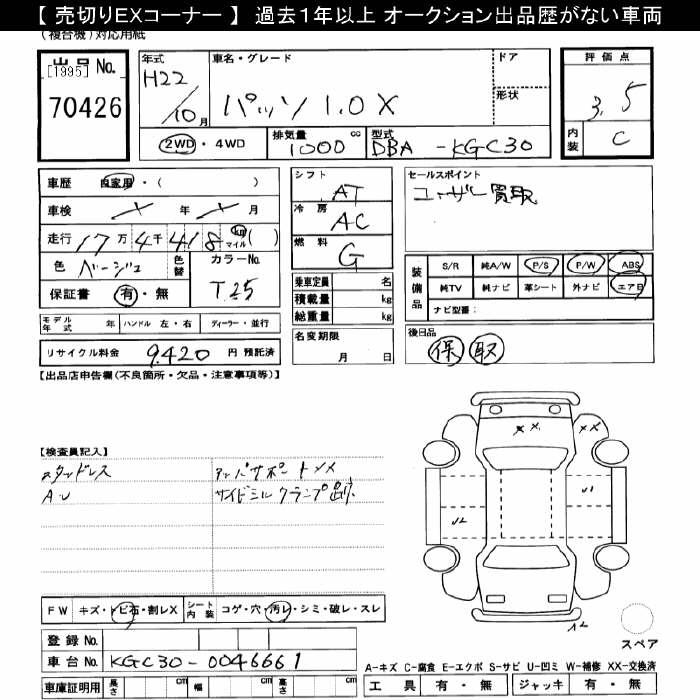 【 売切りEXコーナー 】 過去1年以上 オークション出品歴がない車両
(複合機) 対応用紙
出品 No. [1995]
70426
年式
H22
/10 月
車名・グレード
パッソ 1.0 X
ドア
形状
2WD・4WD
排気量 cc
1000
型式
DBA -KGC30
評価点
3.5
内装
C
車歴 自家用・( )
車検 年 月
走行 17万 4千 418 km マイル ( )
色 ベージュ
色替
カラーNo.
T25
保証書 有・無
モデル年式 年 ハンドル 左・右 ディーラー・並行
リサイクル料金 9.420 円 預託済
シフト
AT
冷房
AC
燃料
G
乗車定員 名
積載量 kg
総重量 kg
名変期限
月 日
セールスポイント
ユーザー買取
装備品
S/R 純A/W P/S P/W ABS
純TV 純ナビ 革シート 外ナビ エアB
ナビ型番:
後日品
保 取
【出品店申告欄(不良箇所・欠品・注意事項等)】
【検査員記入】
スタッドレス
A.U
アッパサポートメメ
サイドミル クランプ跡
XX.
XX
U1
U2
A2
FW キズ・トビ石・割レX
シート内装 コゲ・穴・汚レ・シミ・破レ・スレ
登録 No.
車台 No. KGC30-0046661
車庫証明用 長さ cm 幅 cm 高さ cm
スペア
A-キズ C-腐食 E-エクボ S-サビ U-凹ミ W-補修 XX-交換済
工具 有・無 ジャッキ 有・無